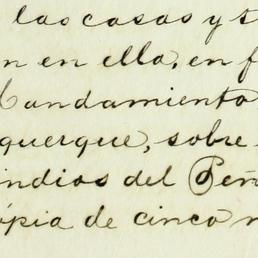 las casas y t
n en ella, en f
Mandamiento
querque, sobre
indios del Peñ
ópia de cinco n